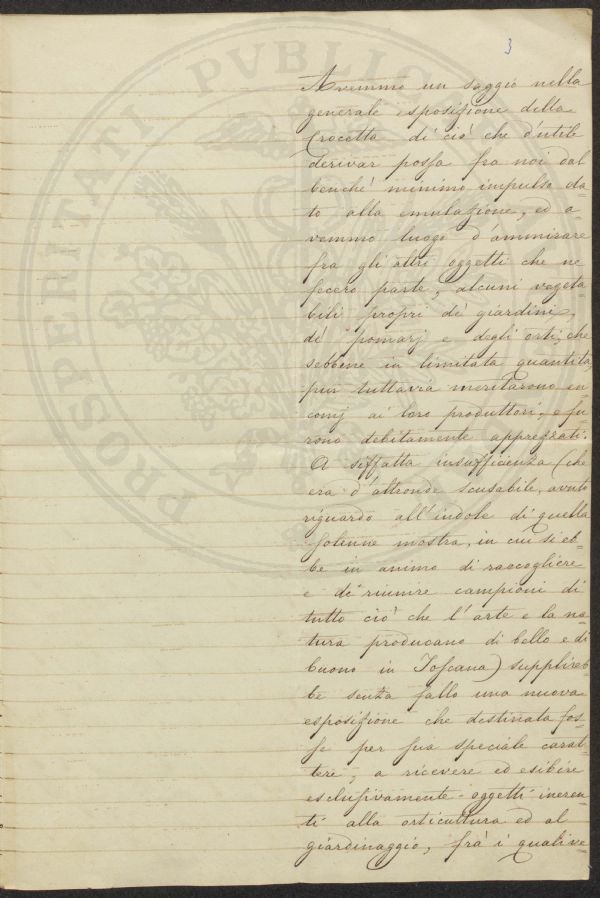 3
PROSPERITATI PVBLIC
Avemmo un saggio nella
generale esposizione della
Crocetta di ciò che d'utile
derivar possa fra noi dal
benchè minimo impulso da-
to alla emulazione, ed a-
vemmo luogo d'ammirare
fra gli altri oggetti che ne
fecero parte, alcuni vegeta-
bili propri de' giardini,
de' pomarj e degli orti, che
sebbene in limitata quantità,
pur tuttavia meritarono en-
comj ai loro produttori, e fu-
rono debitamente apprezzati.
A siffatta insufficienza (che
era d'altronde scusabile, avuto
riguardo all'indole di quella
solenne mostra, in cui si eb-
be in animo di raccogliere
e di riunire campioni di
tutto ciò che l'arte e la na-
tura producano di bello e di
buono in Toscana) supplireb-
be senza fallo una nuova
esposizione che destinata fos-
se per sua speciale carat-
tere, a ricevere ed esibire
esclusivamente oggetti ineren-
ti alla orticultura ed al
giardinaggio, frà i quali ve-